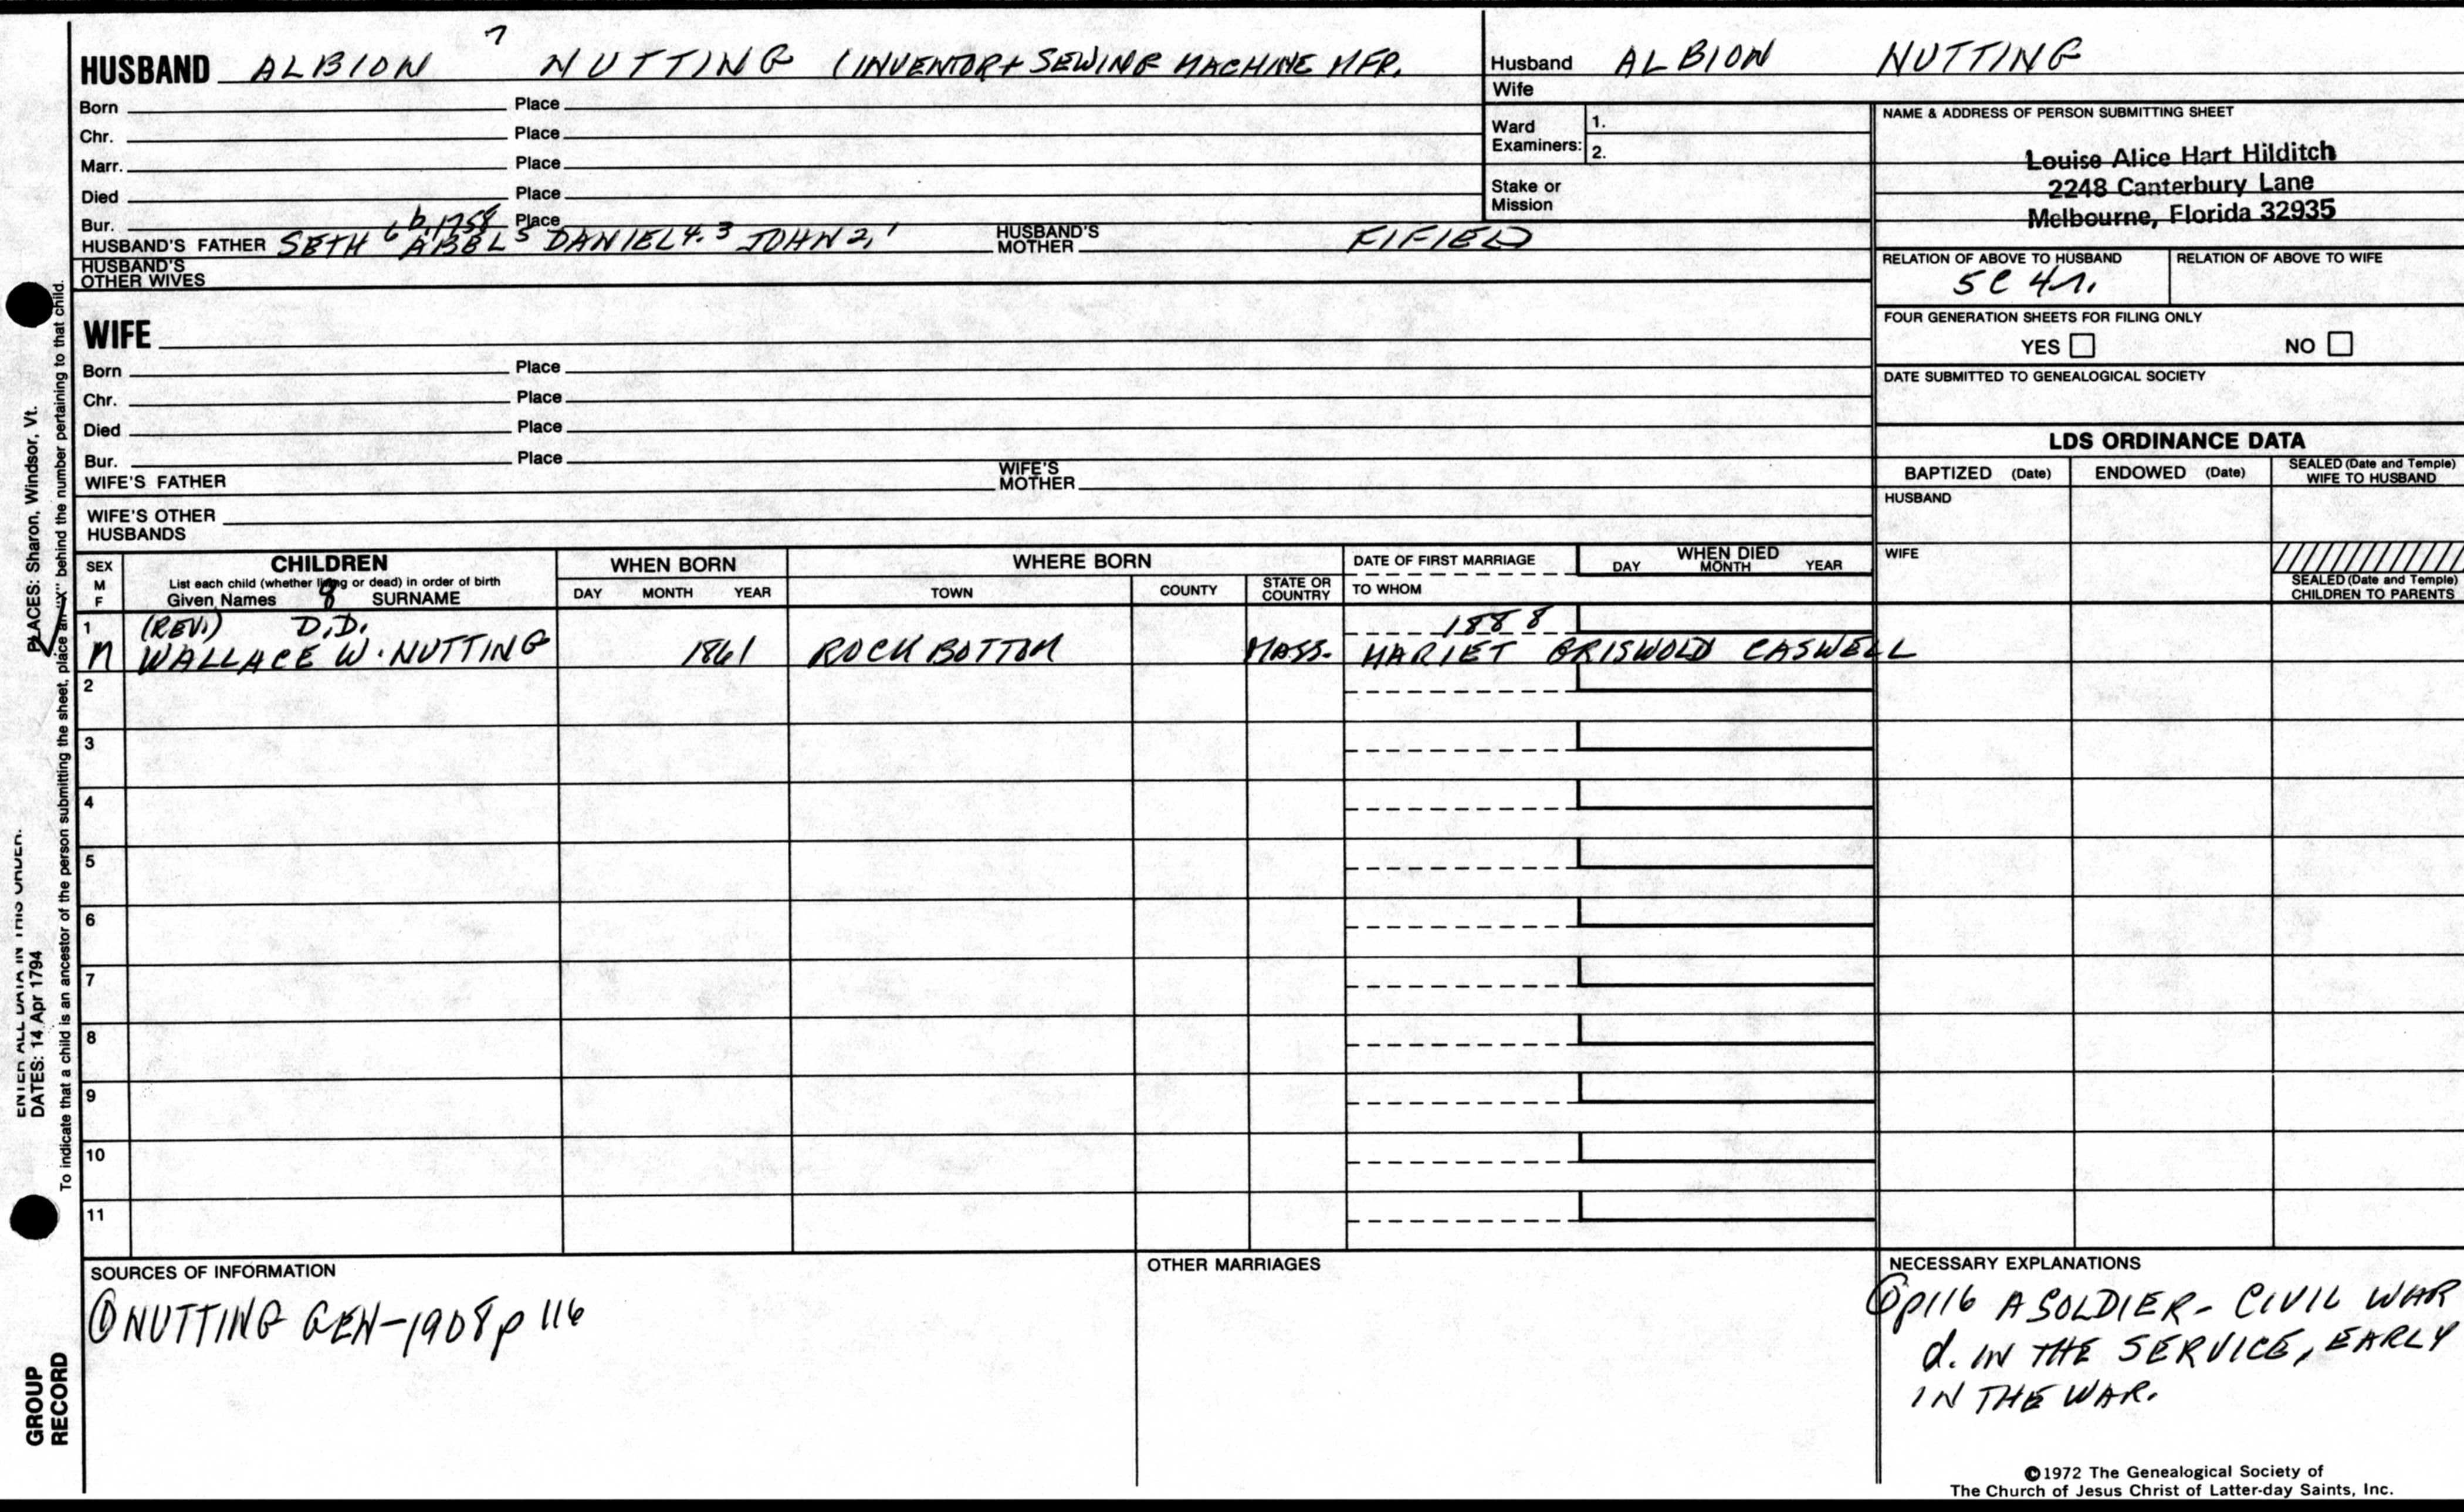 7
HUSBAND ALBION NUTTING (INVENTOR + SEWING MACHINE MFR.
Born Place
Chr. Place
Marr. Place
Died Place
b. 1758
Bur. Place
HUSBAND'S FATHER SETH 6 ABEL 5 DANIEL 4,3 JOHN 2,1 HUSBAND'S MOTHER FIFIELD
HUSBAND'S
OTHER WIVES
WIFE
Born Place
Chr. Place
Died Place
Bur. Place
WIFE'S FATHER WIFE'S MOTHER
WIFE'S OTHER
HUSBANDS
Husband ALBION NUTTING
Wife
Ward
Examiners: 1.
2.
Stake or
Mission
NAME & ADDRESS OF PERSON SUBMITTING SHEET
Louise Alice Hart Hilditch
2248 Canterbury Lane
Melbourne, Florida 32935
RELATION OF ABOVE TO HUSBAND RELATION OF ABOVE TO WIFE
5C 4r.
FOUR GENERATION SHEETS FOR FILING ONLY
YES NO
DATE SUBMITTED TO GENEALOGICAL SOCIETY
LDS ORDINANCE DATA
BAPTIZED (Date) ENDOWED (Date) SEALED (Date and Temple)
WIFE TO HUSBAND
HUSBAND
WIFE
SEALED (Date and Temple)
CHILDREN TO PARENTS
SEX
M
F
CHILDREN
List each child (whether living or dead) in order of birth
Given Names 8 SURNAME
WHEN BORN
DAY MONTH YEAR
WHERE BORN
TOWN COUNTY STATE OR
COUNTRY
DATE OF FIRST MARRIAGE
TO WHOM
WHEN DIED
DAY MONTH YEAR
1 (REV.) D.D. 1888
M WALLACE W. NUTTING 1861 ROCK BOTTOM MASS. HARIET GRISWOLD CASWELL
2
3
4
5
6
7
8
9
10
11
SOURCES OF INFORMATION
① NUTTING GEN-1908 p 116
OTHER MARRIAGES
NECESSARY EXPLANATIONS
① p116 A SOLDIER - CIVIL WAR
d. IN THE SERVICE, EARLY
IN THE WAR.
©1972 The Genealogical Society of
The Church of Jesus Christ of Latter-day Saints, Inc.
ENTER ALL DATA IN THIS ORDER:
DATES: 14 Apr 1794 PLACES: Sharon, Windsor, Vt.
To indicate that a child is an ancestor of the person submitting the sheet, place an "X" behind the number pertaining to that child.
GROUP
RECORD